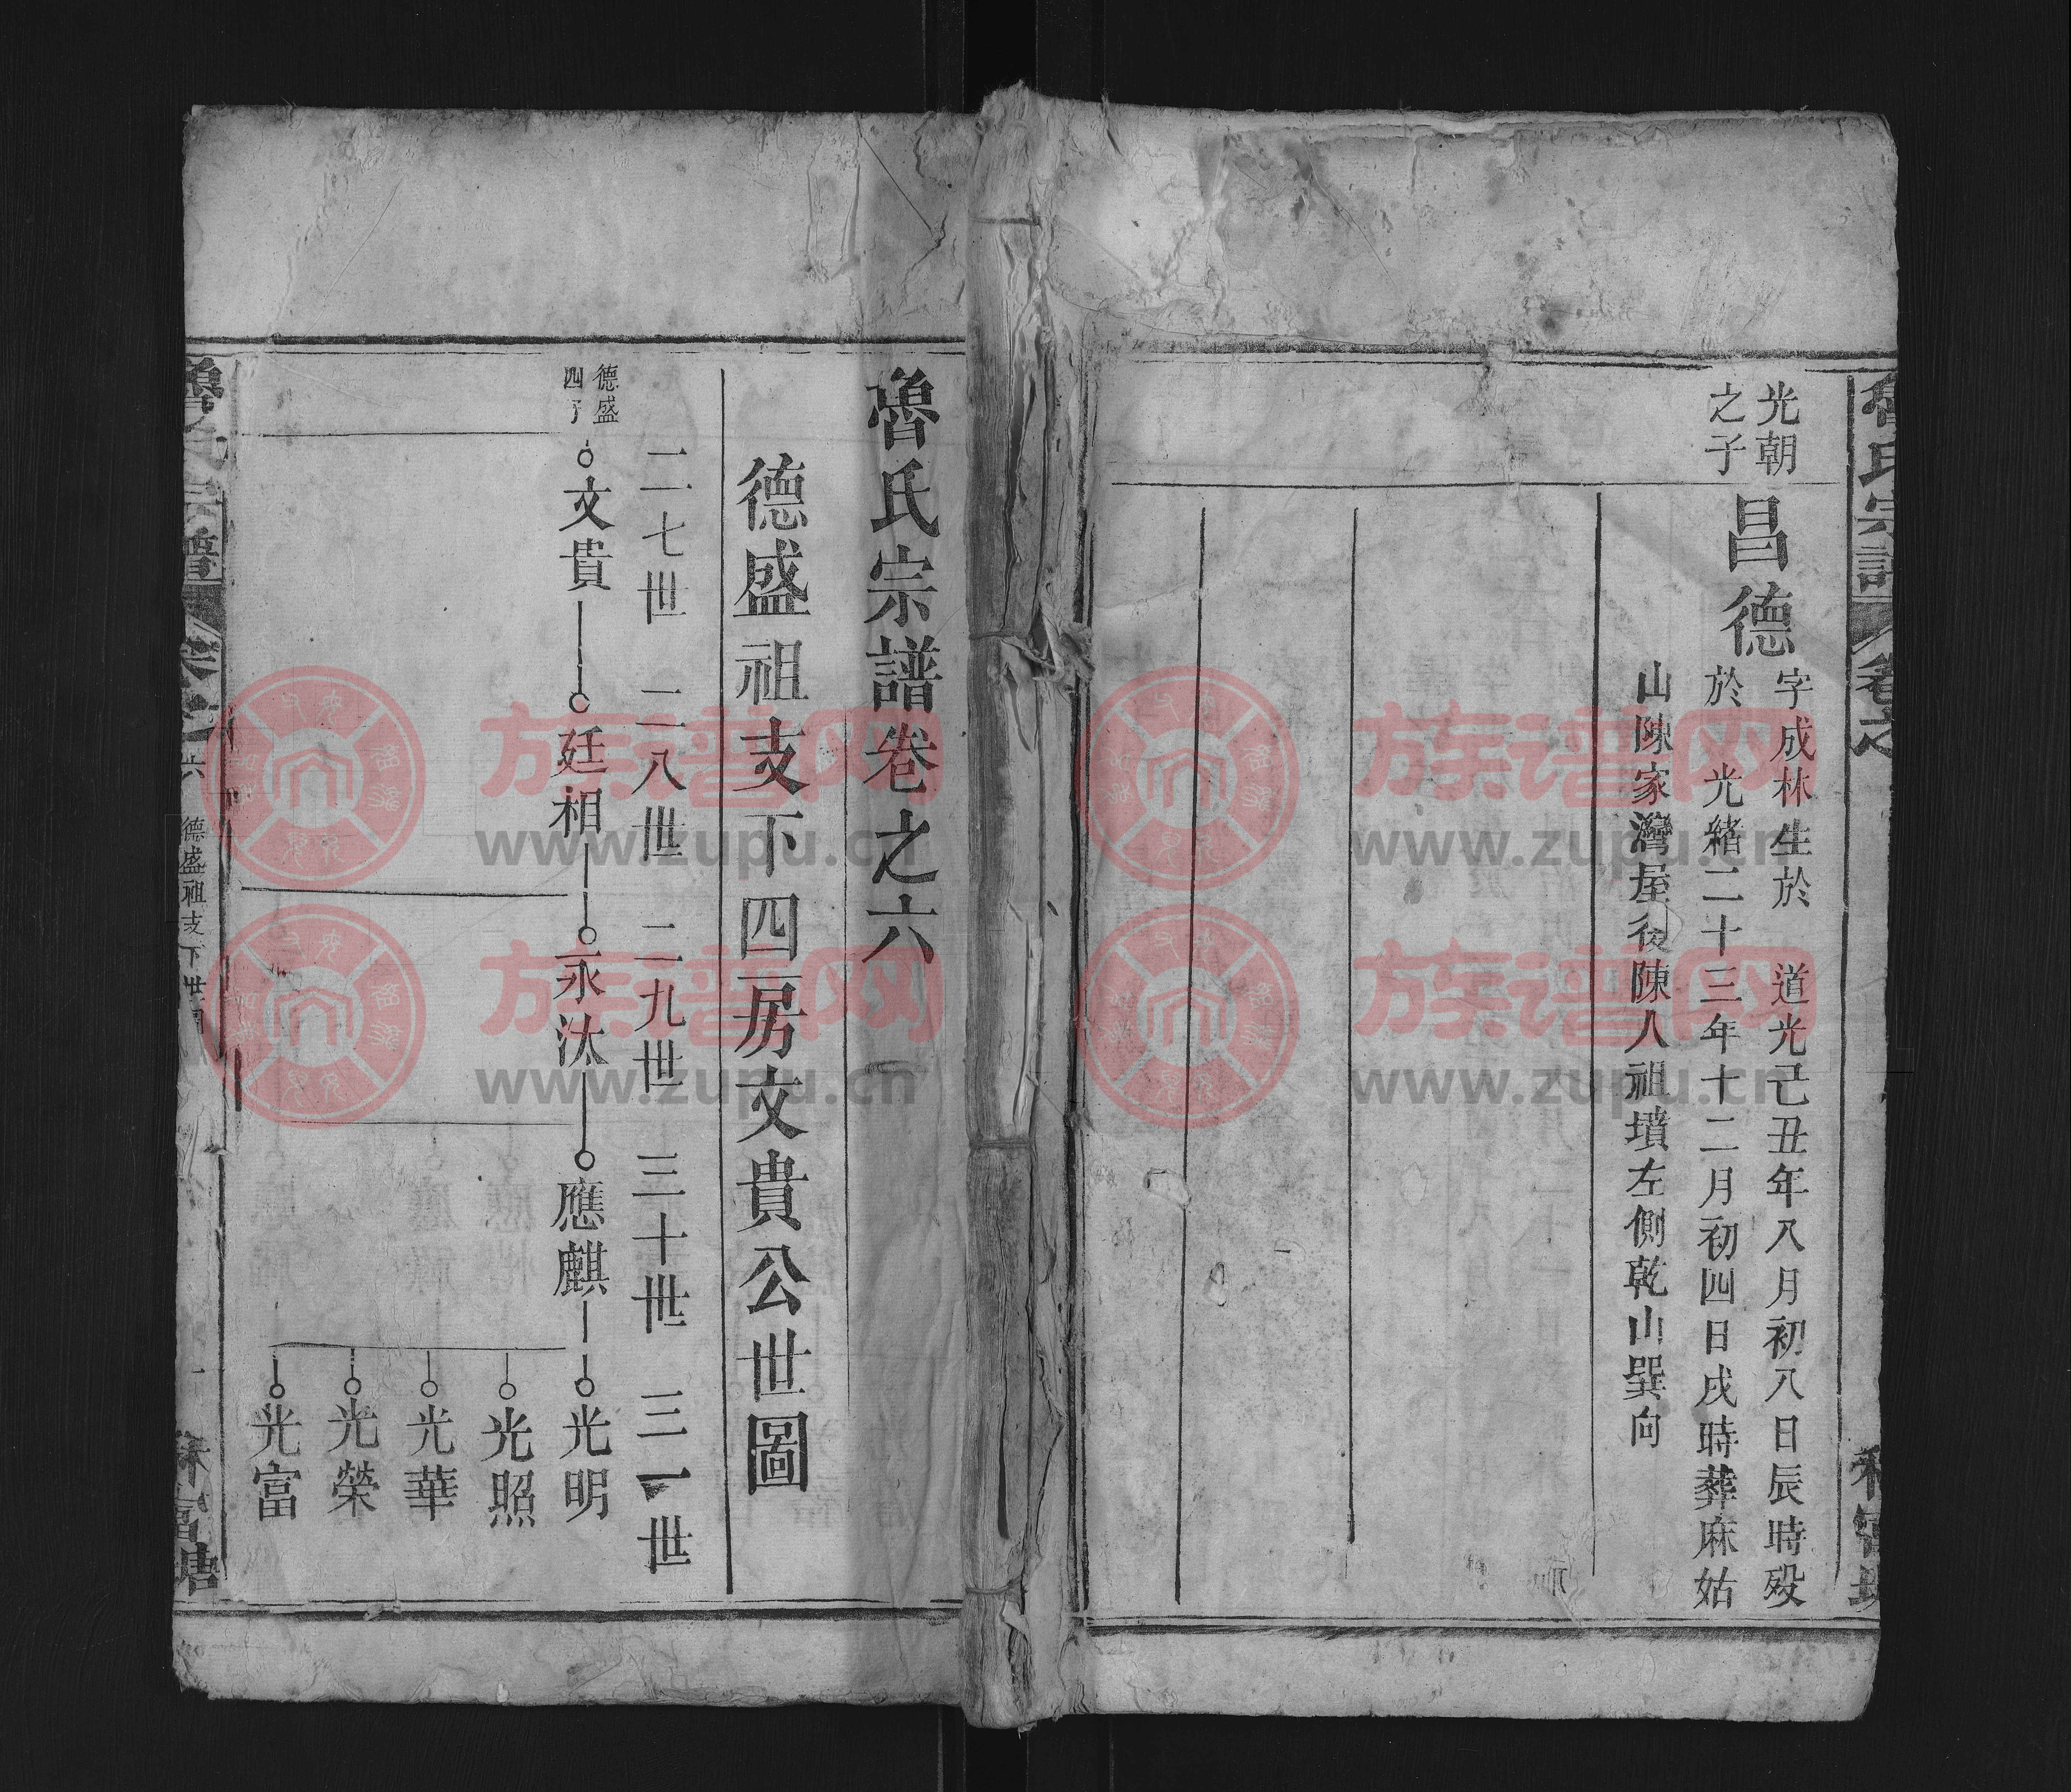 魯氏宗譜
卷之
光朝
之子
昌德
字成林生於 道光己丑年八月初八日辰時殁
於 光緒二十三年十二月初四日戌時葬麻姑
山陳家灣屋後陳人祖墳左側乾山巽向
魯氏宗譜卷之六
德盛祖支下四房文貴公世圖
二七世 二八世 二九世 三十世 三一世
德盛
四子
文貴 廷相 永汰 應麒 光明
光照
光華
光榮
光富
魯氏宗譜 卷之六 德盛祖支下世圖 一
族谱网
www.zupu.cn
族谱网
www.zupu.cn
族谱网
www.zupu.cn
族谱网
www.zupu.cn